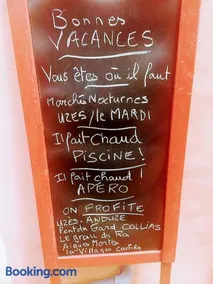 Bonnes
VACANCES
Vous êtes où il faut
Marchés Nocturnes
UZES/le MARDI
Il fait Chaud
PISCINE!
Il fait chaud!
APÉRO
ON PROFITE
UZES. ANDUZE
Pont du Gard COLLIAS
Le grau du Roi
Aigues Morte
Booking.com